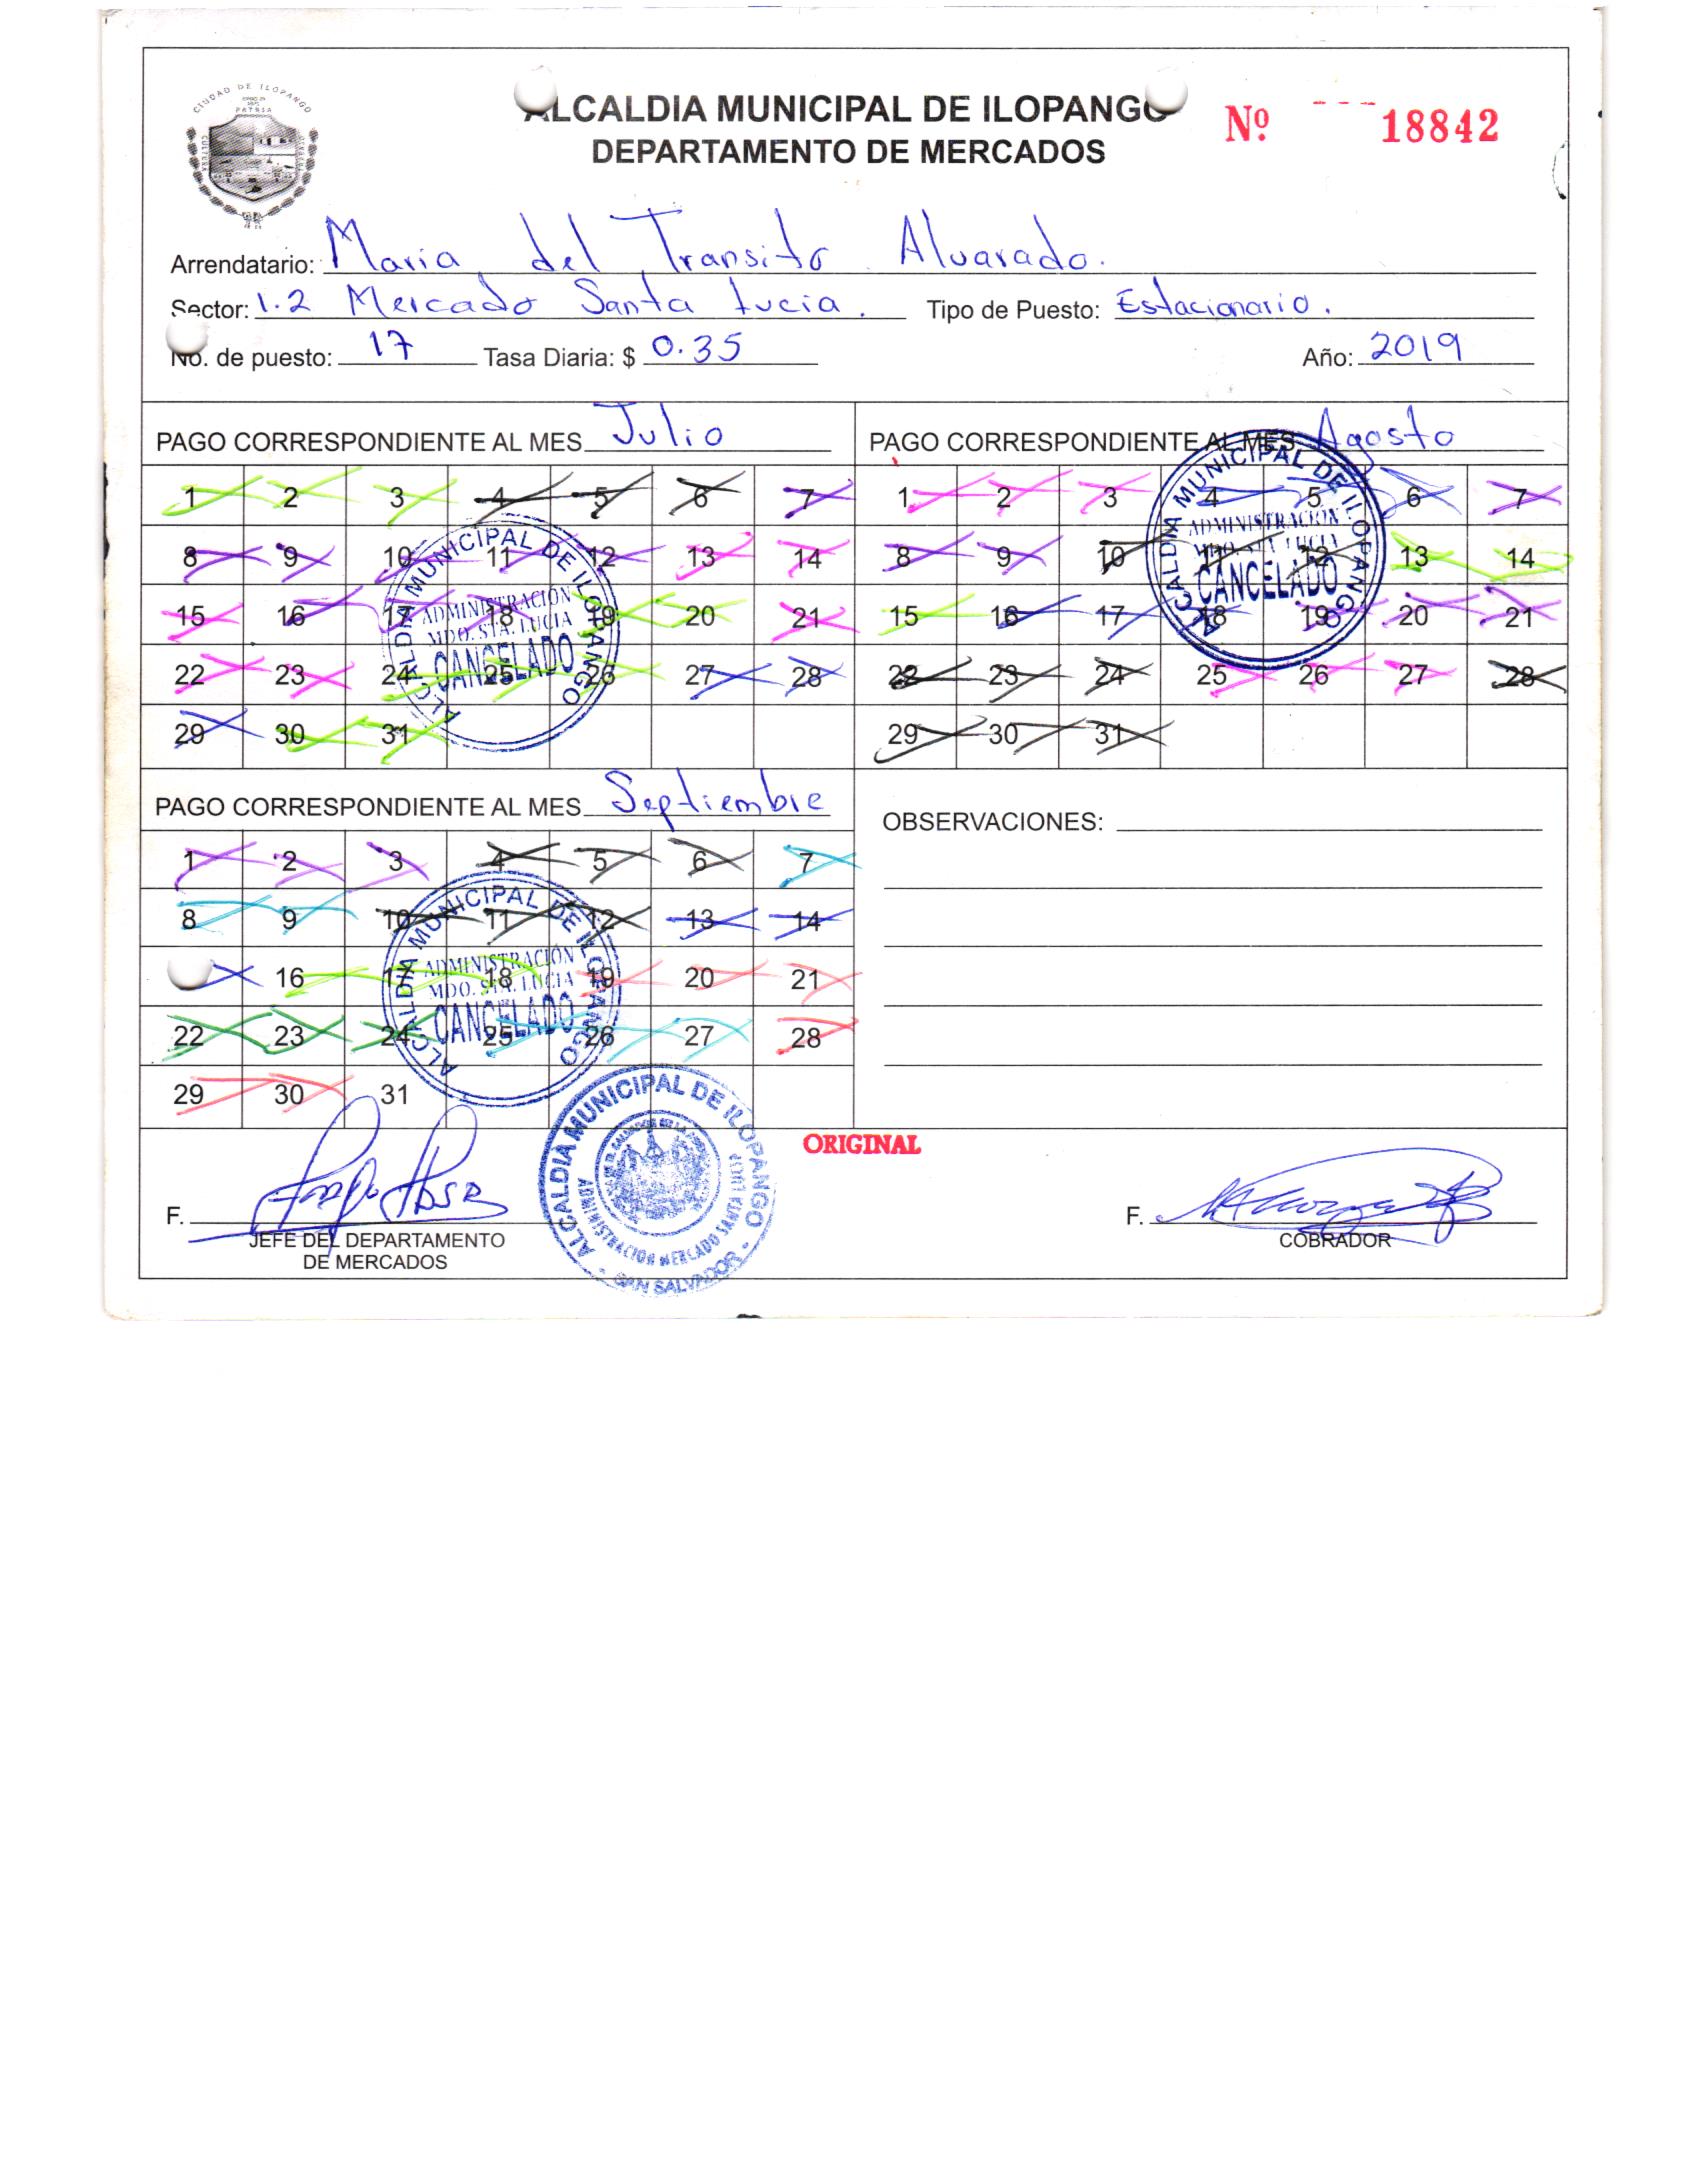 CIUDAD DE ILOPANGO
PATRIA
CULTURA
ALCALDIA MUNICIPAL DE ILOPANGO
DEPARTAMENTO DE MERCADOS
Nº 18842
Arrendatario: Maria del Transito Alvarado.
Sector: 1.2 Mercado Santa Lucia. Tipo de Puesto: Estacionario.
No. de puesto: 17 Tasa Diaria: $ 0.35 Año: 2019
PAGO CORRESPONDIENTE AL MES Julio
1 2 3 4 5 6 7
8 9 10 11 12 13 14
15 16 17 18 19 20 21
22 23 24 25 26 27 28
29 30 31
ALCALDIA MUNICIPAL DE ILOPANGO
ADMINISTRACIÓN
MDO. STA. LUCIA
CANCELADO
PAGO CORRESPONDIENTE AL MES Agosto
1 2 3 4 5 6 7
8 9 10 11 12 13 14
15 16 17 18 19 20 21
22 23 24 25 26 27 28
29 30 31
ALCALDIA MUNICIPAL DE ILOPANGO
ADMINISTRACIÓN
MDO. STA. LUCIA
CANCELADO
PAGO CORRESPONDIENTE AL MES Septiembre
1 2 3 4 5 6 7
8 9 10 11 12 13 14
16 17 18 19 20 21
22 23 24 25 26 27 28
29 30 31
ALCALDIA MUNICIPAL DE ILOPANGO
ADMINISTRACIÓN
MDO. STA. LUCIA
CANCELADO
OBSERVACIONES:
ORIGINAL
F.
JEFE DEL DEPARTAMENTO
DE MERCADOS
ALCALDIA MUNICIPAL DE ILOPANGO
ADMINISTRACION MERCADO SANTA LUCIA
SAN SALVADOR
F.
COBRADOR